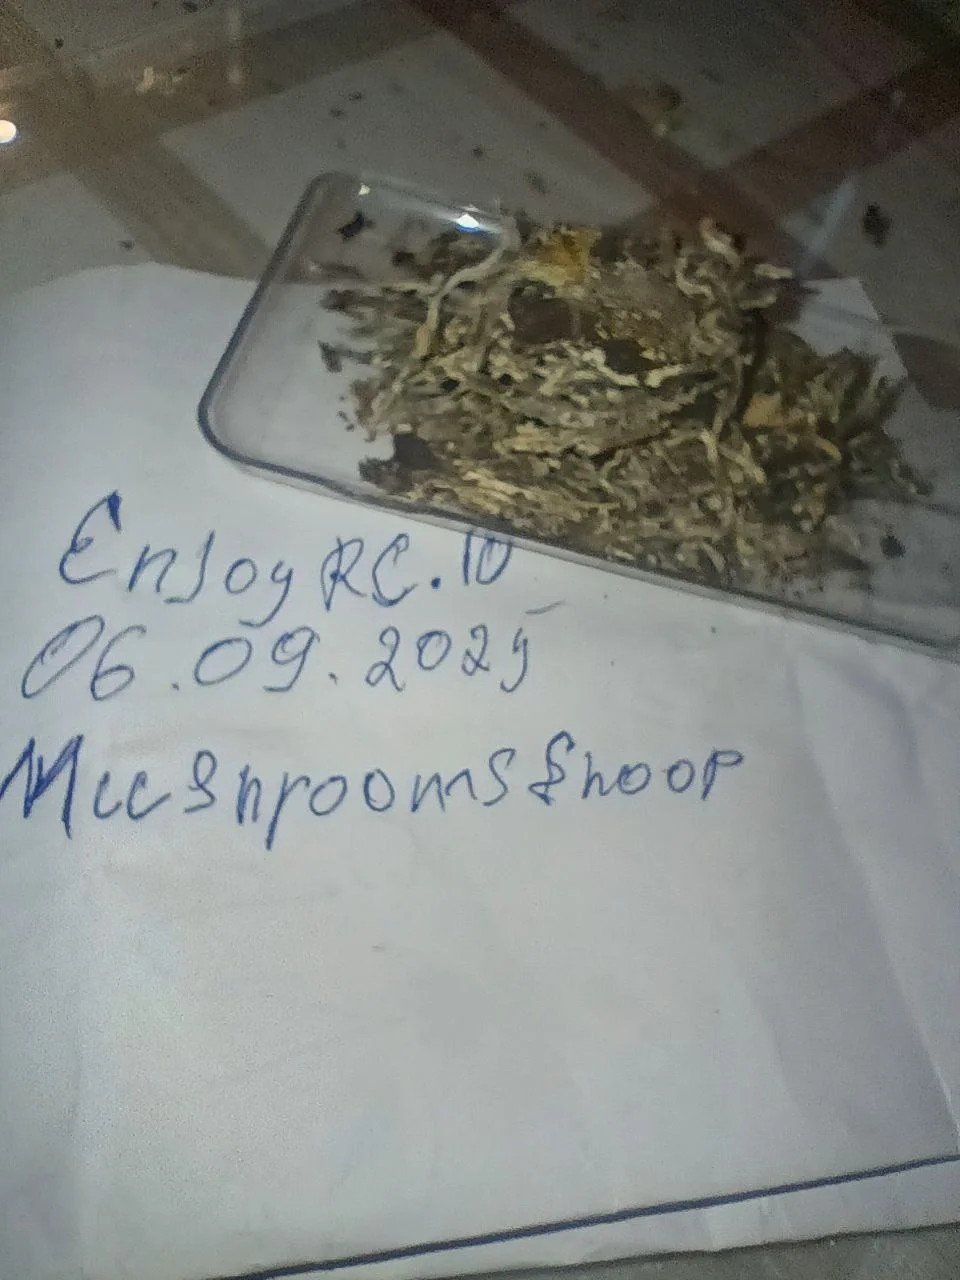 EnJoy RC.10
06.09.2025
Mushrooms Shoop